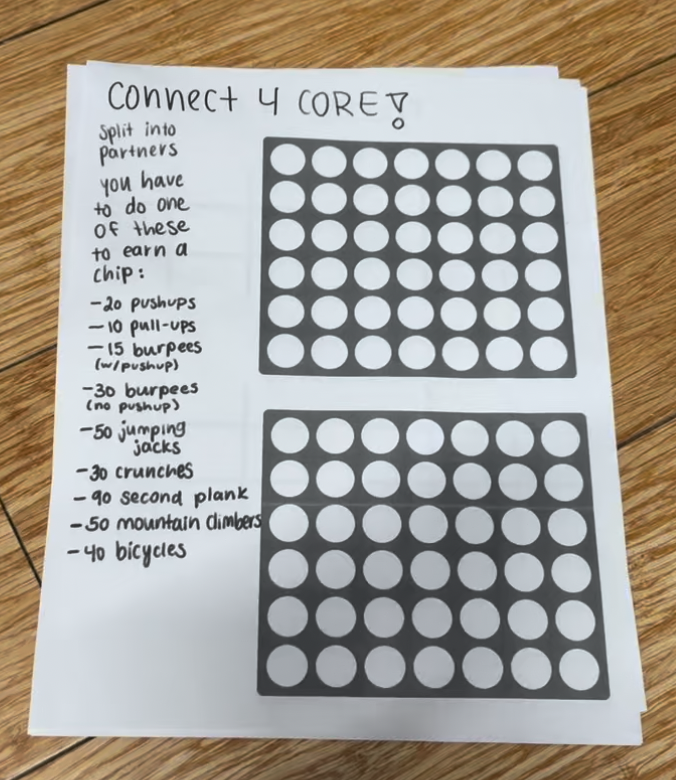 Connect 4 CORE!
Split into
partners
you have
to do one
of these
to earn a
chip:
-20 pushups
-10 pull-ups
-15 burpees
(w/pushup)
-30 burpees
(no pushup)
-50 jumping
jacks
-30 crunches
-90 second plank
-50 mountain climbers
-40 bicycles